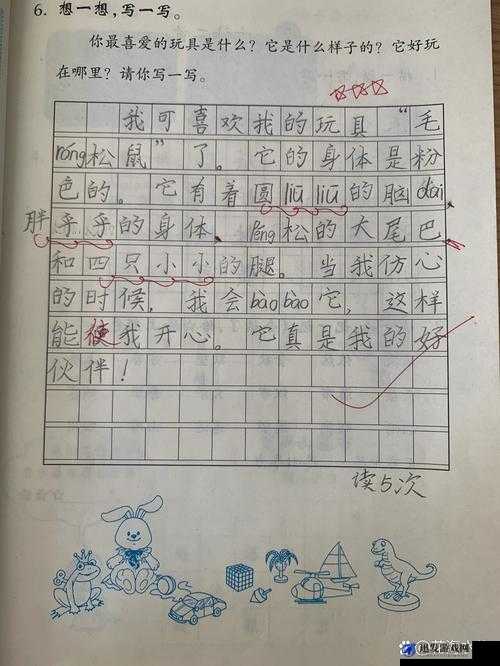 6. 想一想，写一写。
你最喜爱的玩具是什么？它是什么样子的？它好玩
在哪里？请你写一写。
我可喜欢我的玩具“毛
róng松鼠”了。它的身体是粉
色的。它有着圆liū liū的脑dai，
胖乎乎的身体、péng松的大尾巴
和四只小小的腿。当我伤心
的时候，我会bào bào它，这样
能使我开心。它真是我的好
伙伴！
读5次
迅发游戏网